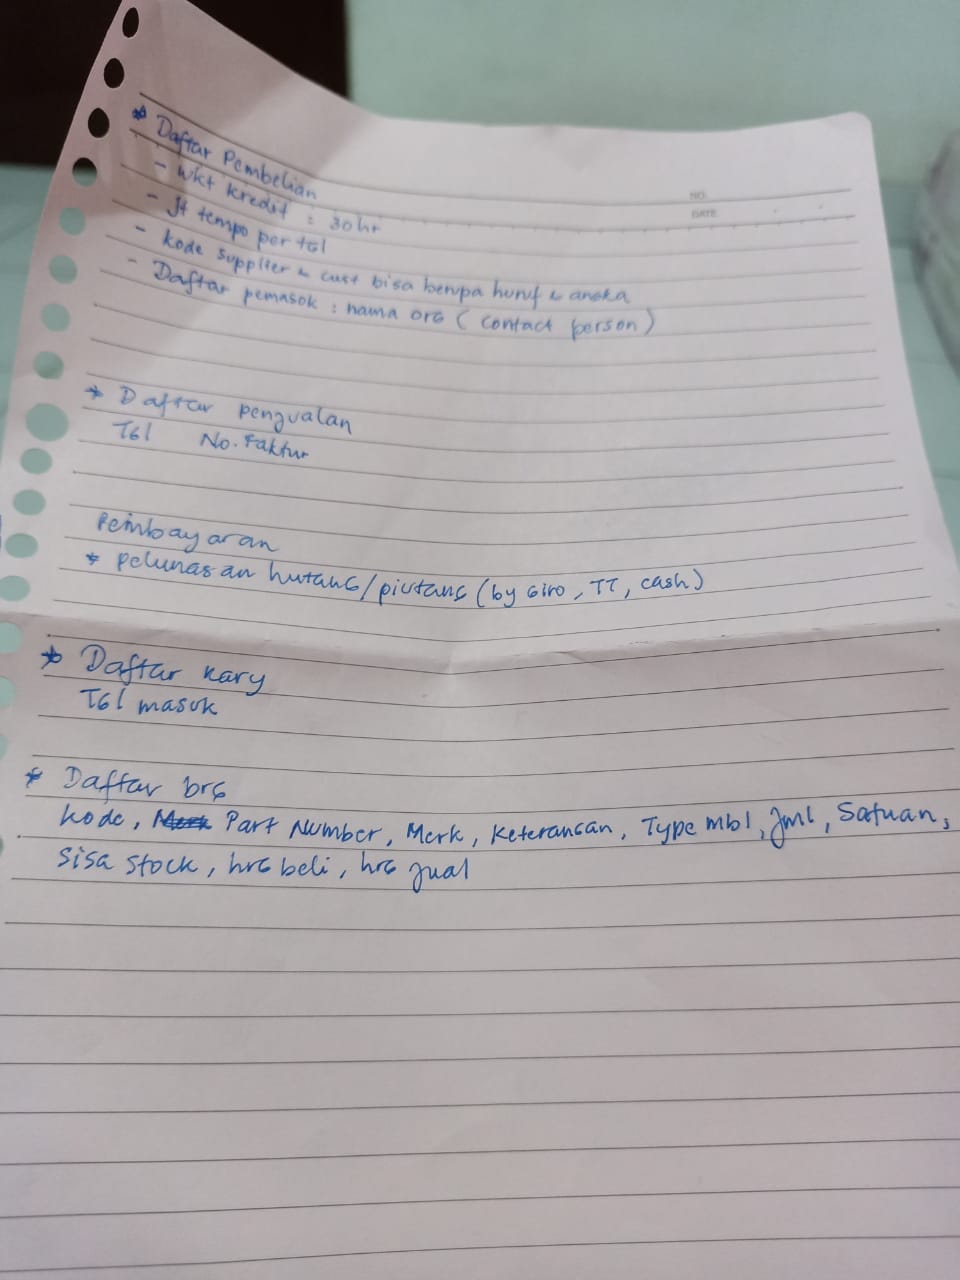 NO.
DATE
* Daftar Pembelian
- wkt kredit : 30 hr
- Jt tempo per tgl
- kode supplier & cust bisa berupa huruf & angka
- Daftar pemasok : nama org (contact person)
* Daftar penjualan
Tgl No. Faktur
Pembayaran
* pelunasan hutang/piutang (by Giro, TT, cash)
* Daftar kary
Tgl masuk
* Daftar brg
kode, Merk Part Number, Merk, Keterangan, Type mbl, Jml, Satuan,
sisa stock, hrg beli, hrg jual